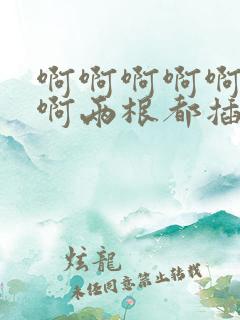 啊啊啊啊啊
啊两根都插
炫龍
未经同意禁止转载